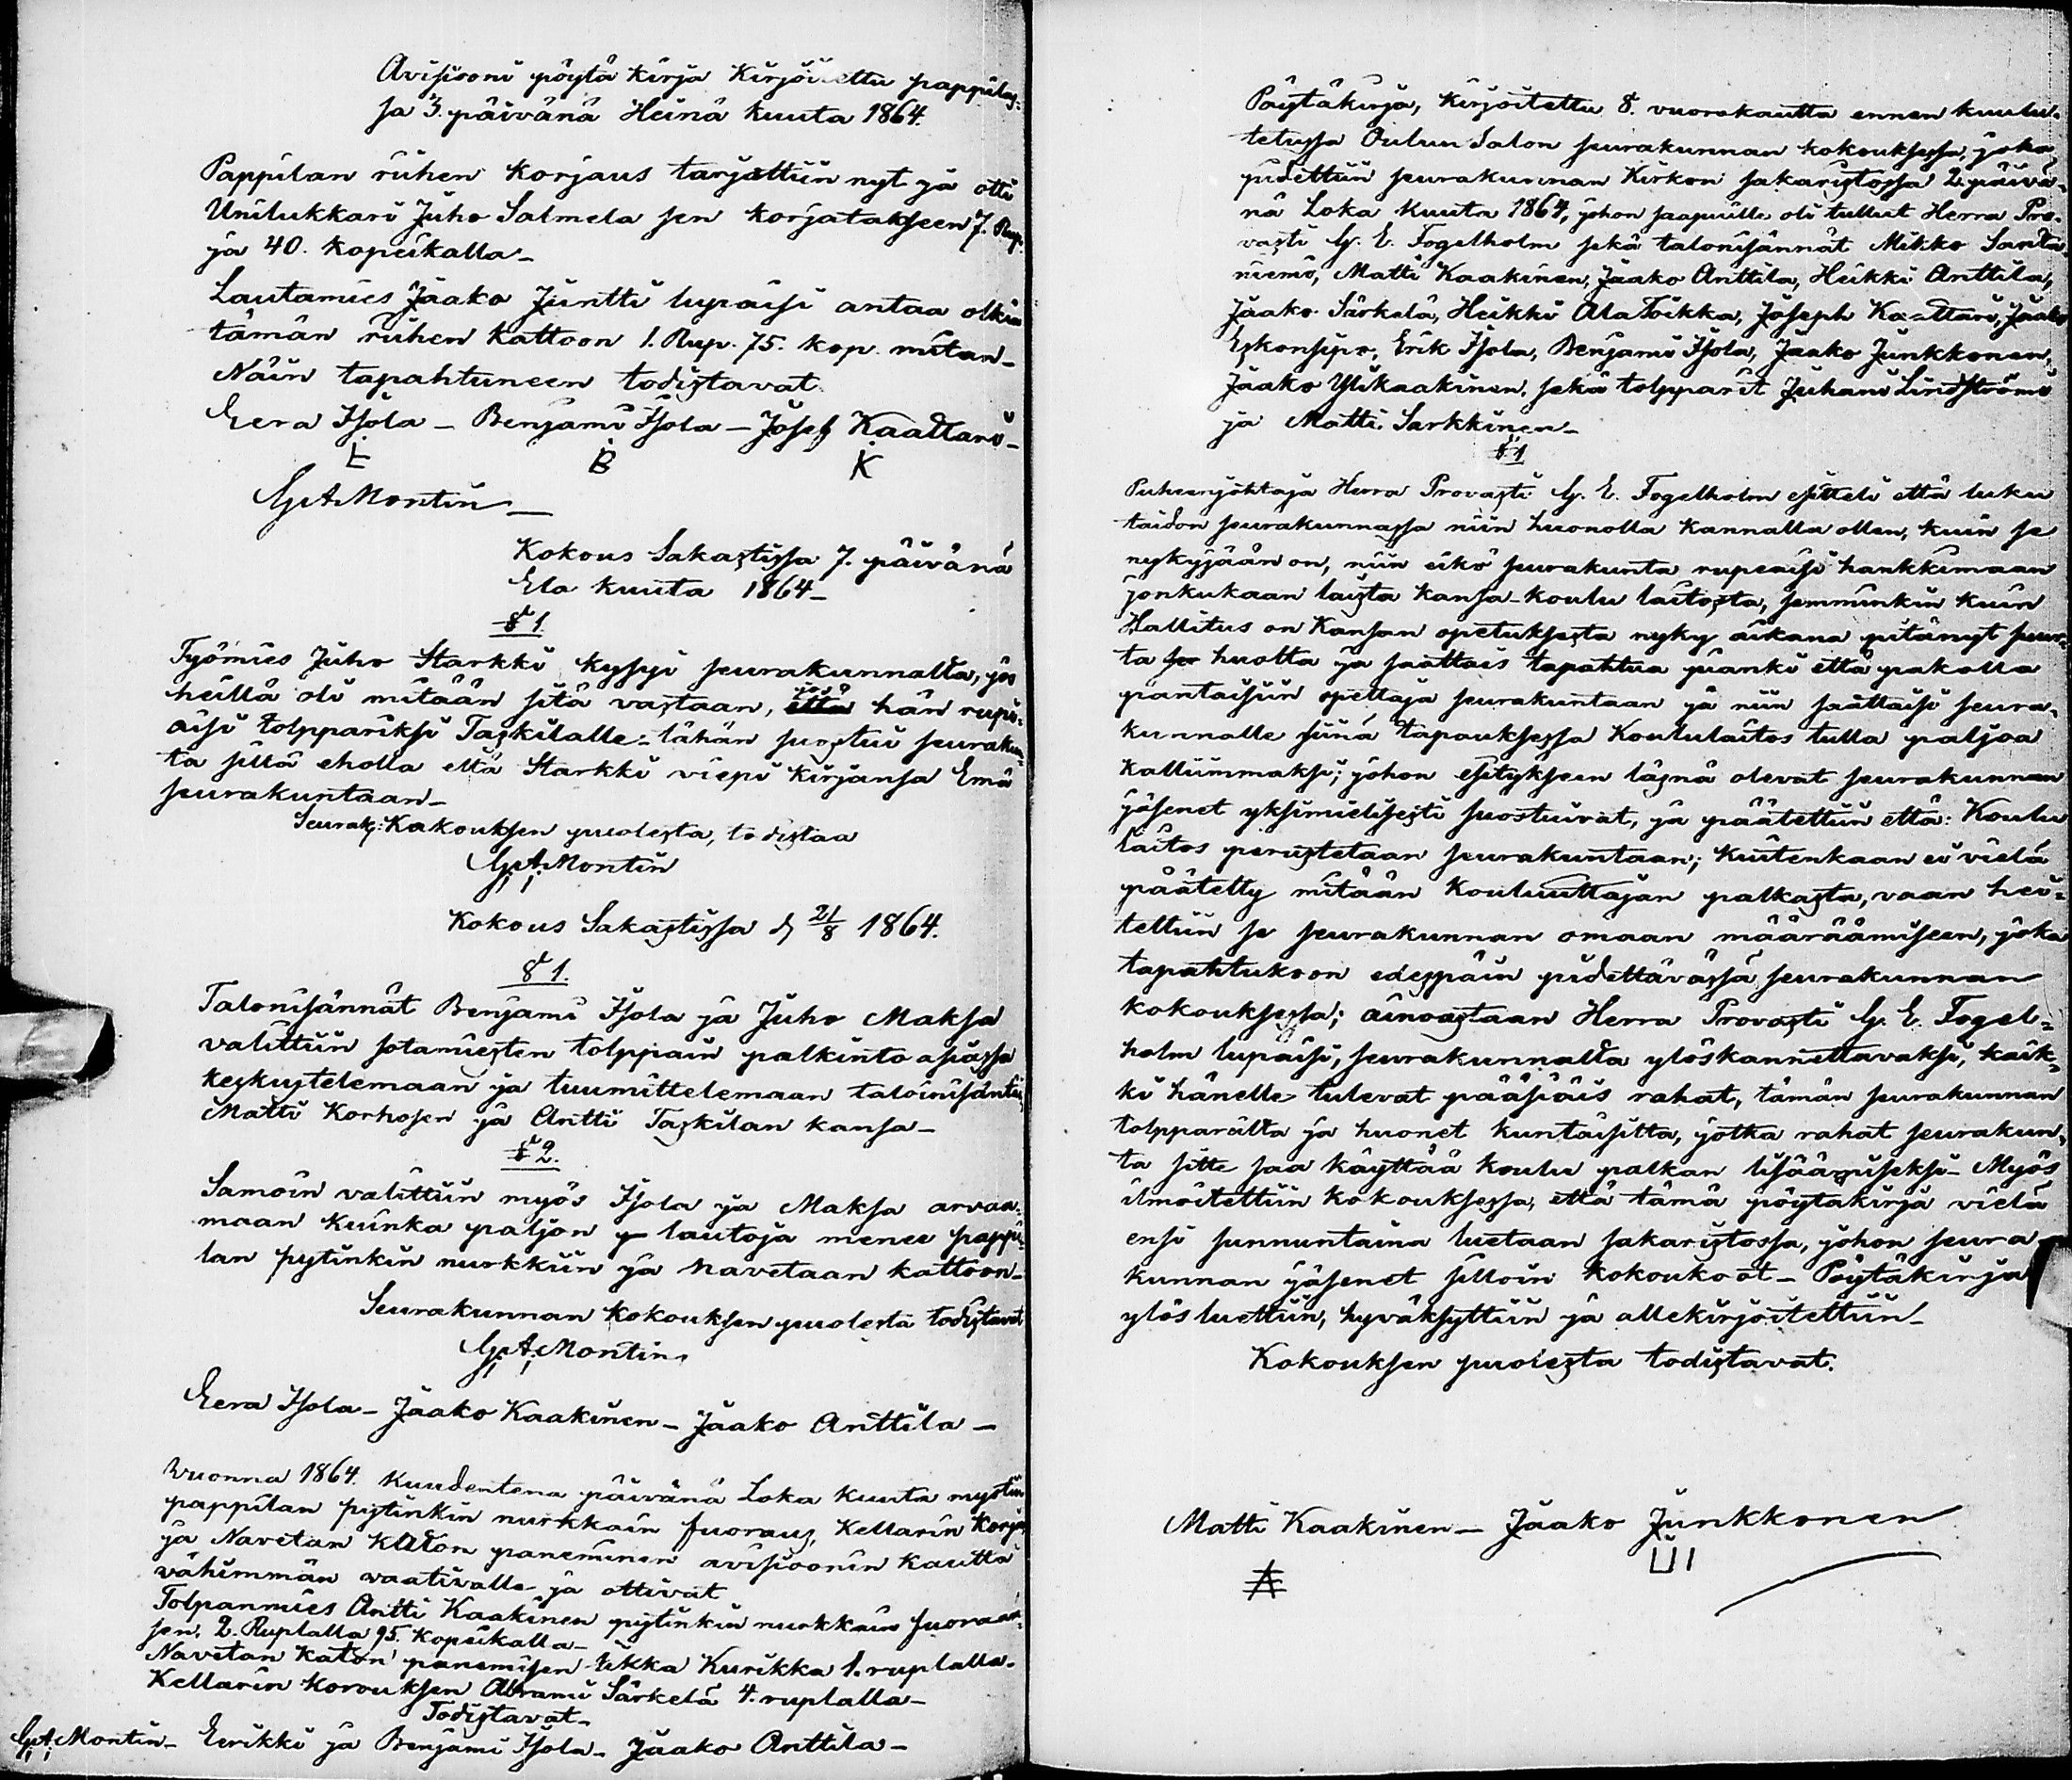 Avisiooni pöytä kirja Kirjoitettu pappilas-
sa 3. päivänä Heinä kuuta 1864.
Pappilan riihen korjaus tarjottiin nyt ja otti
Unilukkari Juho Salmela sen korjatakseen 7. Rup.
ja 40. kopeikalla_
Lautamies Jaako Juntti lupaisi antaa olkia
tämän riihen kattoon 1. Rup. 75. kop. mitan_
Näin tapahtuneen todistavat.
Eera Isola _ Benjami Isola _ Josef Kaattari_
E B K
G. A. Montin_
Kokous Sakastissa 7. päivänä
Elo kuuta 1864_
§ 1.
Työmies Juho Starkki kysyi seurakunnalta, jos
heillä oli mitään sitä vastaan, että jos hän rupi-
aisi tolppariksi Taskilalle_ tähän suostui seurakun-
ta sillä eholla että Starkki viepi kirjansa Emä
seurakuntaan_
Seurak: Kakouksen puolesta, todistaa
G. A. Montin
Kokous Sakastissa d. 21/8 1864.
§ 1.
Talonisännät Benjami Isola ja Juho Maksa
valittiin sotamiesten tolppain palkinto asiassa
keskustelemaan ja tuumittelemaan taloinisäntäin
Matti Korhosen ja Antti Taskilan kansa_
§ 2.
Samoin valittiin myös Isola ja Maksa arvaa-
maan kuinka paljon lautoja menee pappi-
lan pytinkin nurkkiin ja Navetaan kattoon_
Seurakunnan kokouksen puolesta todistavat
G. A. Montin
Eera Isola _ Jaako Kaakinen _ Jaako Anttila _
Wuonna 1864. Kuudentena päivänä Loka kuuta myötiin
pappilan pytinkin nurkkain fuoraus, Kellarin Korjus
ja Navetan katon paneminen avisioonin kautta
vähimmän vaativalle ja ottivat
Tolpanmies Antti Kaakinen pytinkin nurkkain fuorauk-
sen. 2. Ruplalla 95. Kopeikalla_
Navetan katon panemisen Iikka Kurikka 1. ruplalla_
Kellarin korouksen Abrami Särkelä 4. ruplalla_
Todistavat_
G. A. Montin_ Eerikki ja Benjami Isola_ Jaako Anttila_
Pöytäkirja, kirjoitettu 8. vuorokautta ennen kuulu-
tetussa Oulun Salon seurakunnan kokouksessa, joka
pidettiin seurakunnan Kirkon sakaristossa 2. päivä-
nä Loka kuuta 1864, johon saapuille oli tullut Herra Pro-
vasti G. E. Fogelholm sekä talonisännät Mikko Santa
niemi, Matti Kaakinen, Jaako Anttila, Heikki Anttila,
Jaako Särkelä, Heikki AlaToikka, Joseph Kaattari, Jaako
Eskonsipo, Erik Isola, Benjami Isola, Jaako Junkkonen,
Jaako Ylikaakinen, sekä tolpparit Juhani Lindströmi
ja Matti Sarkkinen_
§ 1
Puheenjohtaja Herra Provasti G. E. Fogelholm esitteli että luku
taidon seurakunnassa niin huonolla kannalla ollen, kuin se
nykyjään on, niin eikö seurakunta rupeaisi hankkimaan
jonkukaan laista kansa-koulu laitosta, semminkin kuin
Hallitus on Kansan opetuksesta nyky aikana pitänyt suur-
ta huolta ja saattais tapahtua pianki että pakolla
pantaisiin opettaja seurakuntaan ja niin saattaisi seura-
kunnalle siinä tapauksessa Koululaitos tulla paljoa
kalliimmaksi; johon esitykseen läsnä olevat seurakunnan
jäsenet yksimielisesti suostuivat, ja päätettiin että: Koulu
laitos perustetaan seurakuntaan; kuitenkaan ei vielä
päätetty mitään Kouluuttajan palkasta, vaan hei-
tettiin se seurakunnan omaan määräämiseen, joka
tapahtukoon edespäin pidettävässä seurakunnan
kokouksessa; ainoastaan Herra Provasti G. E. Fogel-
holm lupaisi, seurakunnalta ylöskannettavaksi, kaik-
ki hänelle tulevat pääsiäis rahat, tämän seurakunnan
tolpparilta ja huonet kuntaisilta, jotka rahat seurakun-
ta sitte saa käyttää koulu palkan lisäämiseksi_ Myös
ilmoitettiin kokouksessa, että tämä pöytakirja vielä
ensi sunnuntaina luetaan sakaristossa, johon seura-
kunnan jäsenet silloin kokoukoot _ Pöytäkirja
ylös luettiin, hyväksyttiin ja allekirjoitettiin_
Kokouksen puolesta todistavat.
Matti Kaakinen _ Jaako Junkkonen